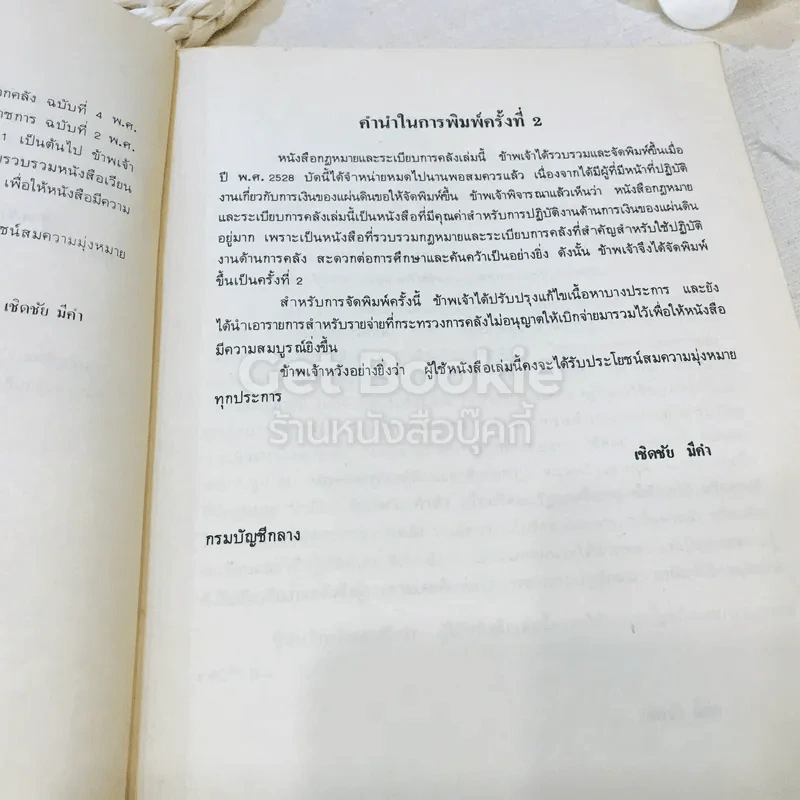 วกคลัง ฉบับที่ 4 พ.ศ.
าชการ ฉบับที่ 2 พ.ศ.
1 เป็นต้นไป ข้าพเจ้า
รวบรวมหนังสือเวียน
เพื่อให้หนังสือมีความ
ชน์สมความมุ่งหมาย
เชิดชัย มีคำ
คำนำในการพิมพ์ครั้งที่ 2
หนังสือกฎหมายและระเบียบการคลังเล่มนี้ ข้าพเจ้าได้รวบรวมและจัดพิมพ์ขึ้นเมื่อ
ปี พ.ศ. 2528 บัดนี้ได้จำหน่ายหมดไปนานพอสมควรแล้ว เนื่องจากได้มีผู้ที่มีหน้าที่ปฏิบัติ
งานเกี่ยวกับการเงินของแผ่นดินขอให้จัดพิมพ์ขึ้น ข้าพเจ้าพิจารณาแล้วเห็นว่า หนังสือกฎหมาย
และระเบียบการคลังเล่มนี้เป็นหนังสือที่มีคุณค่าสำหรับการปฏิบัติงานด้านการเงินของแผ่นดิน
อยู่มาก เพราะเป็นหนังสือที่รวบรวมกฎหมายและระเบียบการคลังที่สำคัญสำหรับใช้ปฏิบัติ
งานด้านการคลัง สะดวกต่อการศึกษาและค้นคว้าเป็นอย่างยิ่ง ดังนั้น ข้าพเจ้าจึงได้จัดพิมพ์
ขึ้นเป็นครั้งที่ 2
สำหรับการจัดพิมพ์ครั้งนี้ ข้าพเจ้าได้ปรับปรุงแก้ไขเนื้อหาบางประการ และยัง
ได้นำเอารายการสำหรับรายจ่ายที่กระทรวงการคลังไม่อนุญาตให้เบิกจ่ายมารวมไว้เพื่อให้หนังสือ
มีความสมบูรณ์ยิ่งขึ้น
ข้าพเจ้าหวังอย่างยิ่งว่า ผู้ใช้หนังสือเล่มนี้คงจะได้รับประโยชน์สมความมุ่งหมาย
ทุกประการ
Get Bookie
ร้านหนังสือบุ๊คกี้
เชิดชัย มีคำ
กรมบัญชีกลาง